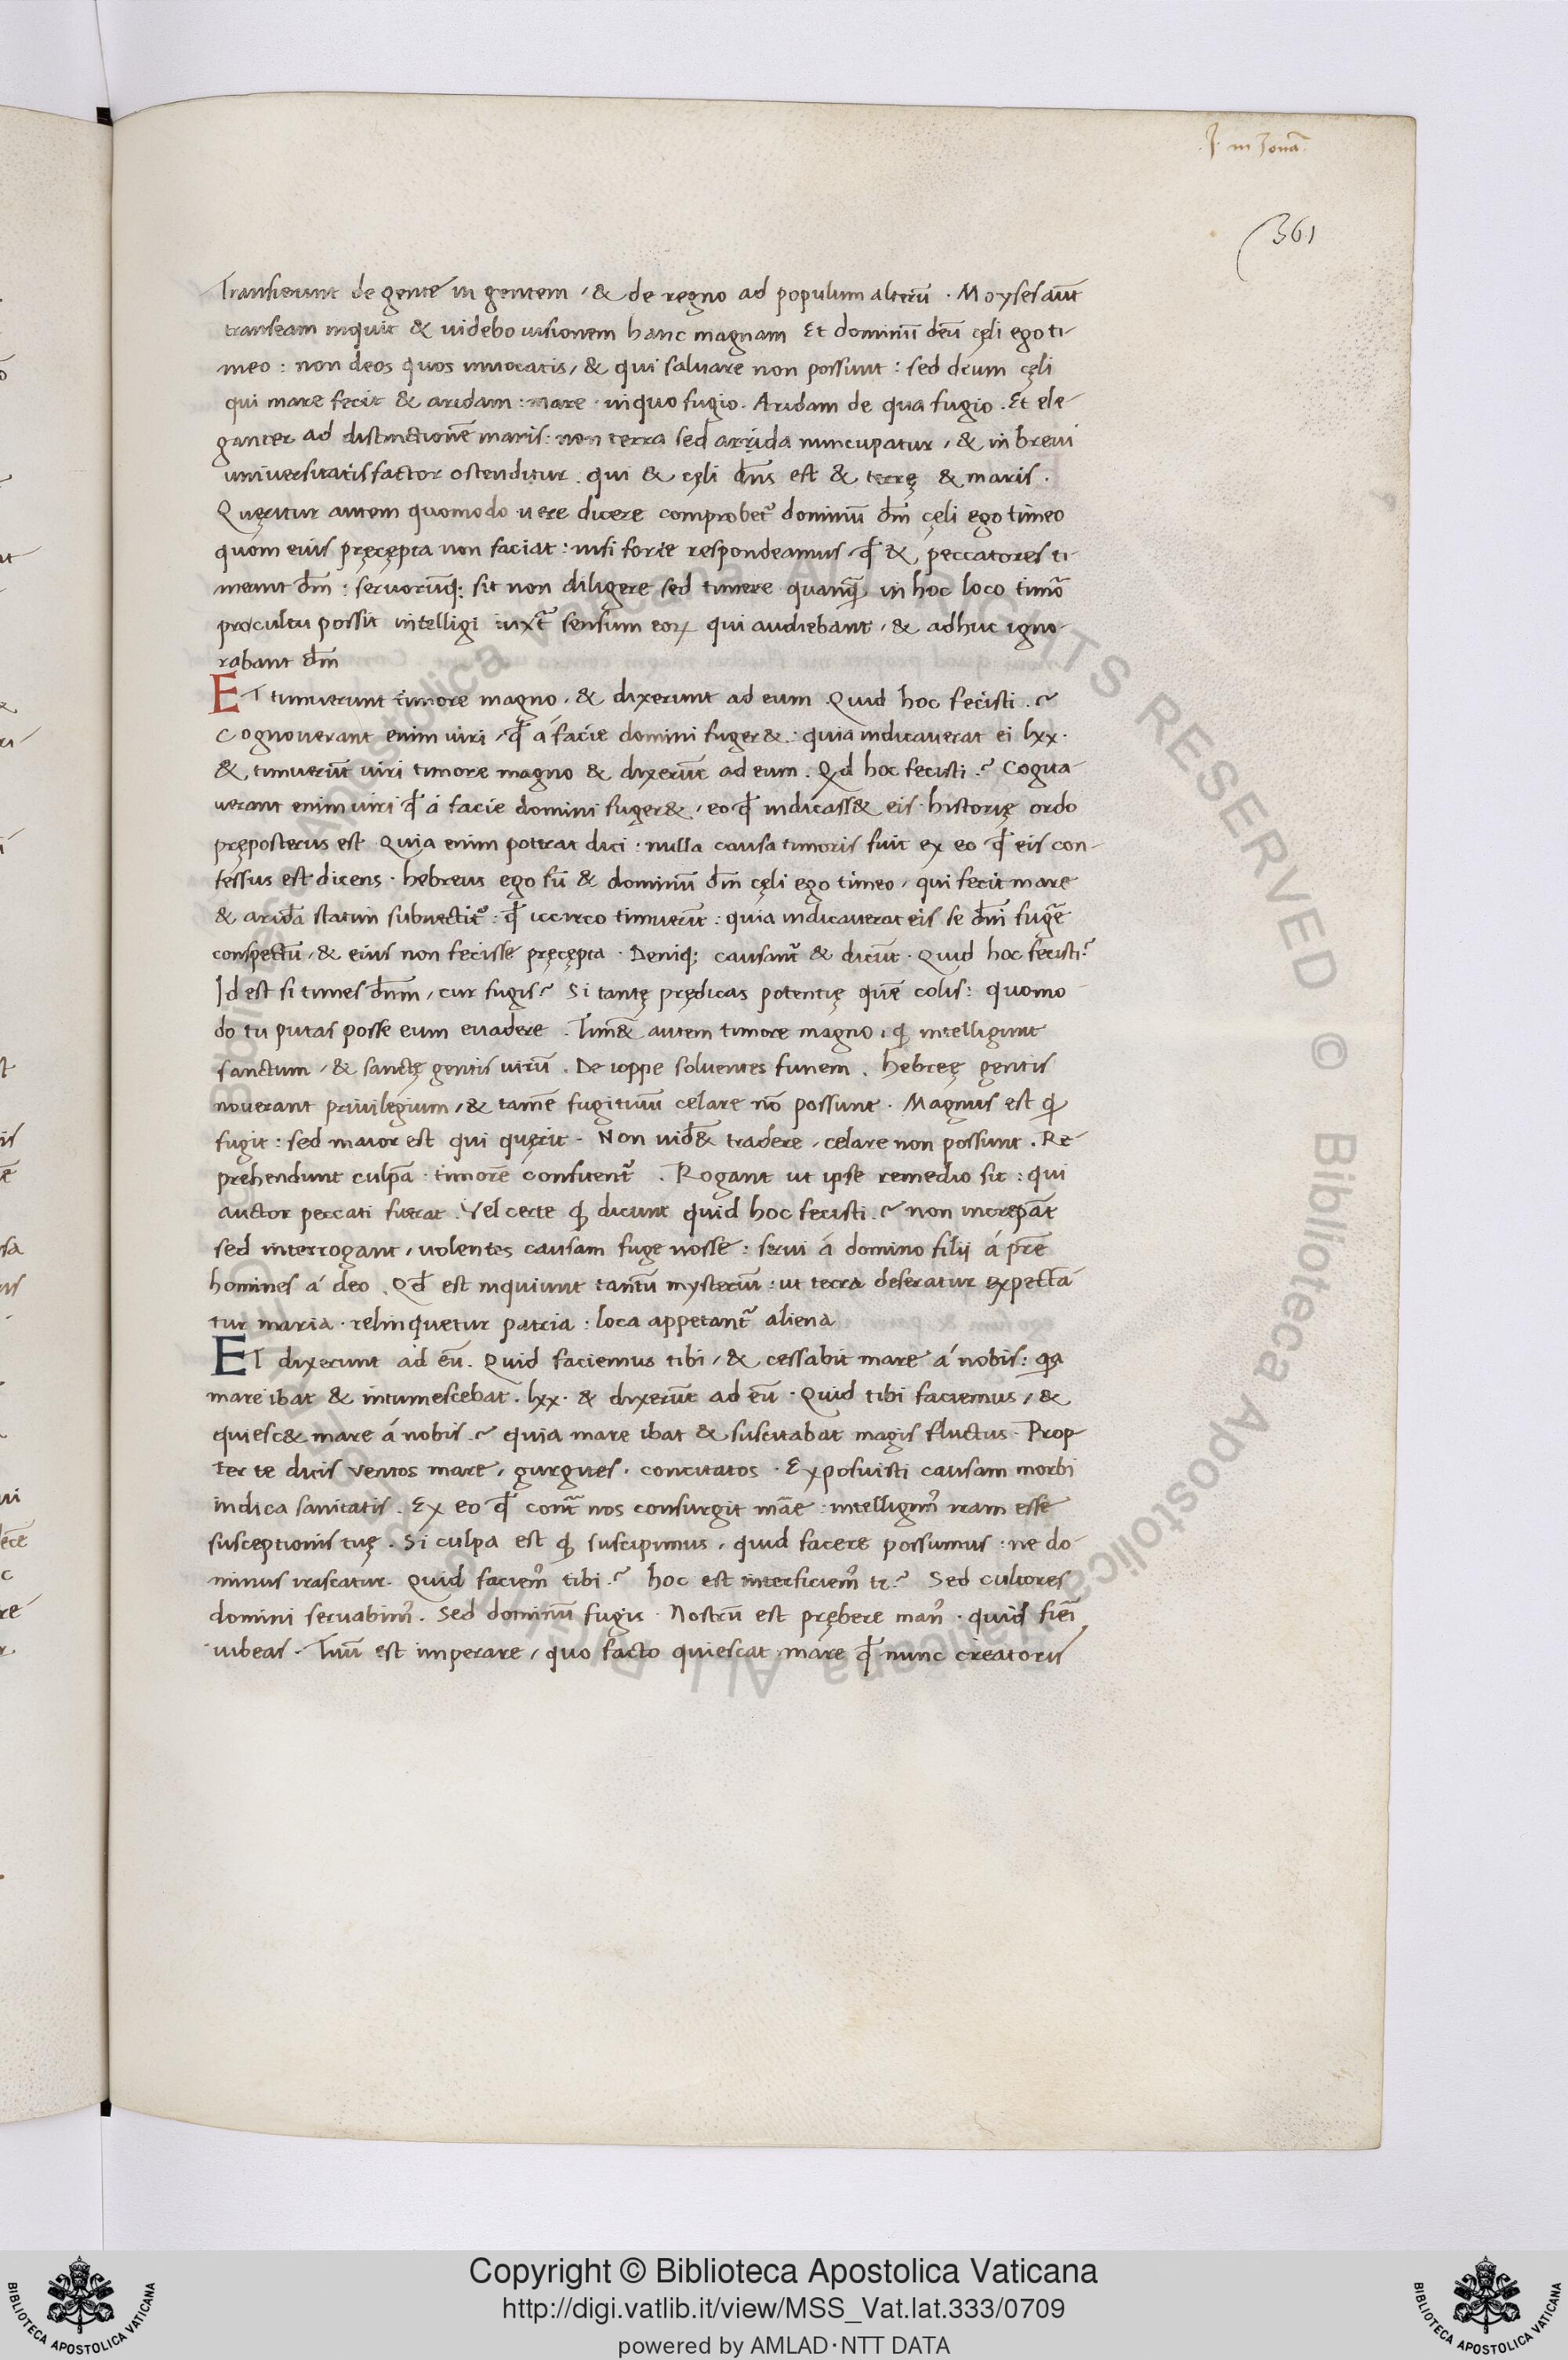 .J. in Jonā.
361
Transierunt de gente in gentem, & de regno ad populum alterū. Moyses aūt
transeam inquit & uidebo uisionem hanc magnam Et dominū deū cęli ego ti-
meo: non deos quos inuocatis, & qui saluare non possunt: sed deum cęli
qui mare fecit & aridam: mare inquo fugio. Aridam de qua fugio. Et ele-
ganter ad distinctionē maris: non terra sed arrida nuncupatur, & in breui
uniuersitatis factor ostenditur. qui & cęli dn̄s est & terrę & maris.
Quęritur autem quomodo uere dicere comprobet᷑ dominū dm̄ cęli ego timeo
quom eius pręcępta non faciat: nisi forte respondeamus, qđ & peccatores ti-
meant dm̄: seruorūq; sit non diligere sed timere quanq̄ in hoc loco timō
procultu possit intelligi iuxt᷑ sensum eoꝝ qui audiebant, & adhuc igno-
rabant dm̄
ET timuerunt timore magno, & dixerunt ad eum. Quid hoc fecisti.?
Cognouerant enim uiri, qđ á facie domini fuger&: quia indicauerat ei lxx.
&, timuerūt uiri timore magno & dixerūt ad eum. Qd hoc fecisti.? Cogna-
uerant enim uiri qđ á facie domini fuger&, eo qđ indicass& eis historię ordo
pręposterus est. Quia enim poterat dici: nulla causa timoris fuit ex eo qđ eis con-
fessus est dicens. hebreus ego sū & dominū dm̄ cęli ego timeo, qui fecit mare
& aridā statim subnectit᷑: qđ iccirco timuerūt: quia indicauerat eis se dn̄i fugē
conspectū, & eius non fecisse pręcępta. Deniq; causant᷑ & dicūt. Quid hoc fecisti?
Id est si times dn̄m, cur fugis? Si tantę prędicas potentię quē colis: quomo-
do tu putas posse eum euadere. Tim& autem timore magno, ꝙ intelligunt
sanctum, & sanctę gentis uirū. De ioppe soluentes funem. hebreę gentis
nouerant priuilegium, & tamē fugitiuū celare nō possunt. Magnus est ꝙ
fugit: sed maior est qui quęrit. Non uid& tradere, celare non possunt. Re-
prehendunt culpā. timorē confitent᷑. Rogant ut ipse remedio sit: qui
auctor peccati fuerat. Vel certe ꝙ dicunt quid hoc fecisti.? non increpāt
sed interrogant, uolentes causam fuge nosse: serui á domino filij á pr̄e
homines á deo. Qđ est inquiunt tantū mysteriū: ut terra deseratur expectā-
tur maria. relinquetur patria: loca appetant᷑ aliena
ET dixerunt ad eū. Quid faciemus tibi, & cessabit mare á nobis: ꝗa
mare ibat & intumescebat. lxx. & dixerūt ad eū. Quid tibi faciemus, &
quiesc& mare á nobis.? quia mare ibat & suscitabat magis fluctus. Prop-
ter te dicis ventos mare, gurgites, concitatos. Exposuisti causam morbi
indica sanitatis. Ex eo qđ cont᷑ nos consurgit māe: intelligim᷒ iram esse
susceptionis tuę. Si culpa est ꝙ suscipimus, quid facere possumus: ne do-
minus irascatur. Quid faciem᷒ tibi.? hoc est interficiem᷒ te? Sed cultores
domini seruabim᷒. Sed dominū fugis. Nostrū est prębere man᷒. quid fieī
iubeas. Tuū est imperare, quo facto quiescat mare qđ nunc creatoris
Copyright © Biblioteca Apostolica Vaticana
http://digi.vatlib.it/view/MSS_Vat.lat.333/0709
powered by AMLAD·NTT DATA